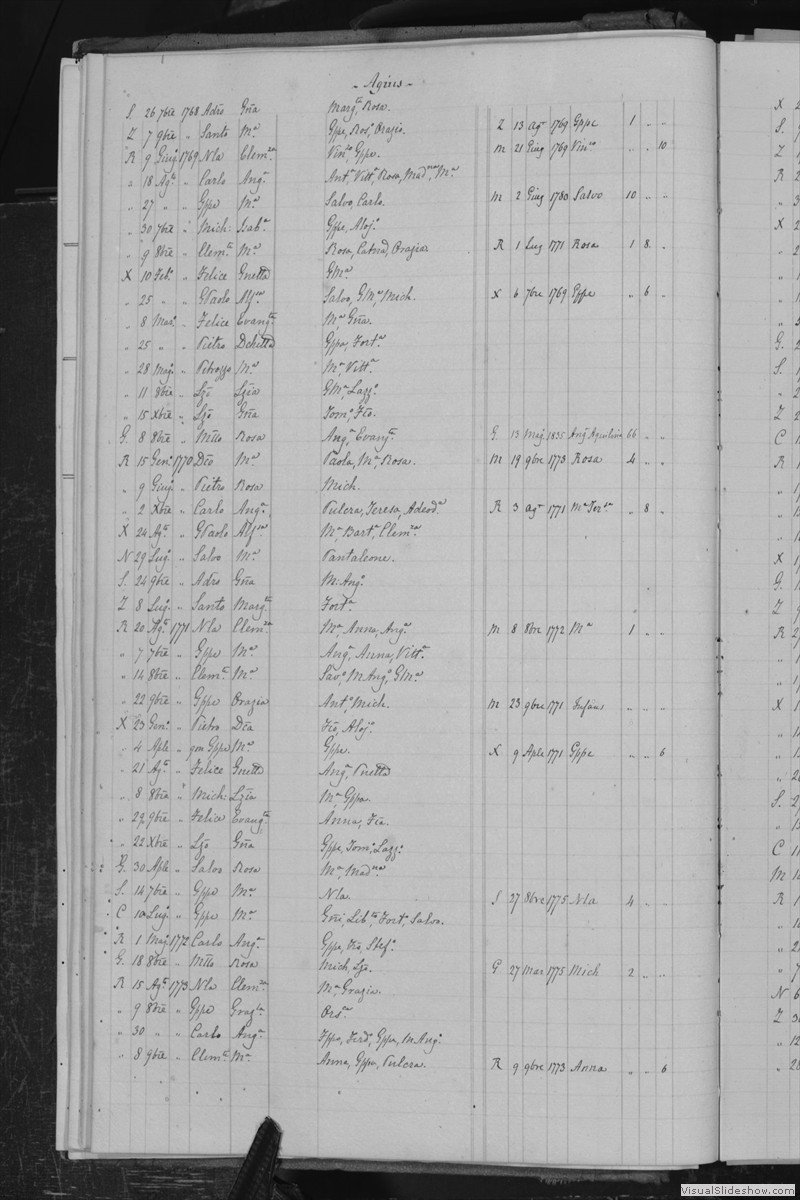 - Agius -
S. 26 7bre 1768 Adro Gña Margta, Rosa.
Z 7 9bre " Santo Ma Gppe, Rosa, Orazio. Z 13 Agto 1769 Gppe 1 " "
R 9 Giugo 1769 Nla Clemza Vinzo, Gppe. M 21 Giug 1769 Vinzo " " 10
" 18 Agto " Carlo Anga Anta, Vitta, Rosa, Madna, Ma
" 27 " " Gppe Ma Salvo, Carlo. M 2 Giug 1780 Salvo 10 " "
" 30 7bre " Mich: Isaba Gppe, Alojo.
" 9 8bre " Clemte Ma Rosa, Catnd, Orazia R 1 Lug 1771 Rosa 1 8 "
X 10 Febo " Felice Gnetta GMa
" 25 " " GPaolo Alfsa Salvo, GMa, Mich. X 6 7bre 1769 Gppe " 6 "
" 8 Maro " Felice Evangta Ma, Gña.
" 25 " " Pietro Dchetta Gppa, Forta
" 28 Mago " Petruzzo Ma Ma, Vitta
" 11 8bre " Lzo Lzia GMa, Lazzo.
" 15 Xbre " Lzo Gña Tomo, Fco.
G. 8 8bre " Mtto Rosa Anga, Evangta. G 13 Mag 1835 Anga Aquilina 66 " "
R 15 Geno 1770 Dco Ma Paola, Ma, Rosa. M 19 9bre 1773 Rosa 4 " "
" 9 Giugo " Pietro Rosa Mich.
" 2 Xbre " Carlo Anga Pulcra, Teresa, Adeoda R 3 Agto 1771 Ma Tersa " 8 "
X 24 Agto " GPaolo Alfsa Ma, Barta, Clemza
N 29 Lugo " Salvo Ma Pantaleone.
S. 24 9bre " Adro Gña M: Ango.
Z 8 Lugo " Santo Margta Forta
R 20 Agto 1771 Nla Clemza Ma, Anna, Anga M 8 8bre 1772 Ma 1 " "
" 7 7bre " Gppe Ma Anga, Anna, Vitta.
" 14 8bre " Clemte Ma Savo, M Ango, GMa
" 22 9bre " Gppe Orazia Anto, Mich. M 23 9bre 1771 Infans " " "
X 23 Geno " Pietro Dca Fco, Alojo.
" 4 Aple " qm Gppe Ma Gppe. X 9 Aple 1771 Gppe " " 6
" 21 Agto " Felice Gnetta Anga, Pnetta
" 8 8bre " Mich: Lzia Ma, Gppa.
" 29 9bre " Felice Evangta Anna, Fca.
" 22 Xbre " Lzo Gña Gppe, Tomo, Lazzo.
G. 30 Aple " Salvo Rosa Ma, Madna
S. 14 7bre " Gppe Ma Nla. S 27 8bre 1775 Nla 4 " "
C 10 Lugo " Gppe Ma Gni, Liba, Forto, Salva.
R 1 Mago 1772 Carlo Anga Gppe, Fca, Stefo.
G. 18 8bre " Mtto Rosa Mich, Lzo. G 27 Mar 1775 Mich 2 " "
R 15 Agto 1773 Nla Clemza Ma, Grazia.
" 9 8bre " Gppe Grazla Orsa
" 30 " " Carlo Anga Fppo, Ferdo, Gppe, M Ango.
" 8 9bre " Clemte Ma Anna, Gppe, Pulcra. R 9 9bre 1773 Anna " " 6
VisualSlideshow.com